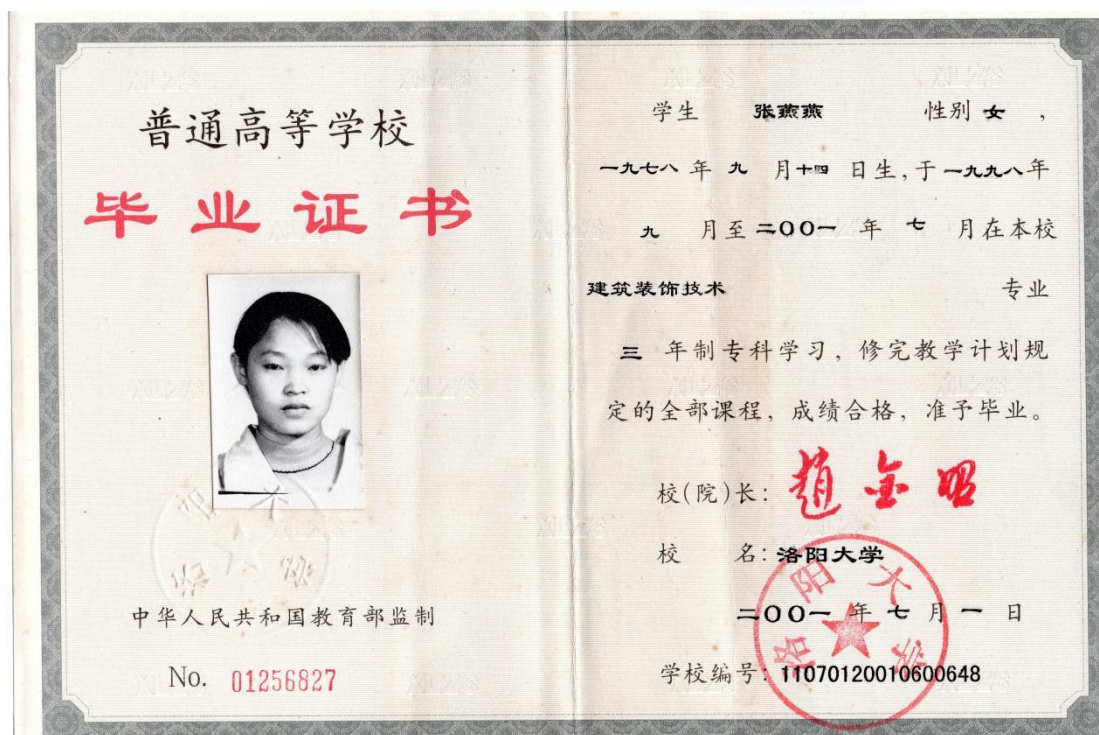 普通高等学校
毕业证书
中华人民共和国教育部监制
No. 01256827
学生 张燕燕 性别 女 ，
一九七八 年 九 月 十四 日生，于 一九九八 年
九 月至 二〇〇一 年 七 月在本校
建筑装饰技术 专业
三 年制专科学习，修完教学计划规
定的全部课程，成绩合格，准予毕业。
校(院)长： 趙金昭
校 名：洛阳大学
二〇〇一 年 七 月 一 日
学校编号：11070120010600648
洛阳大学